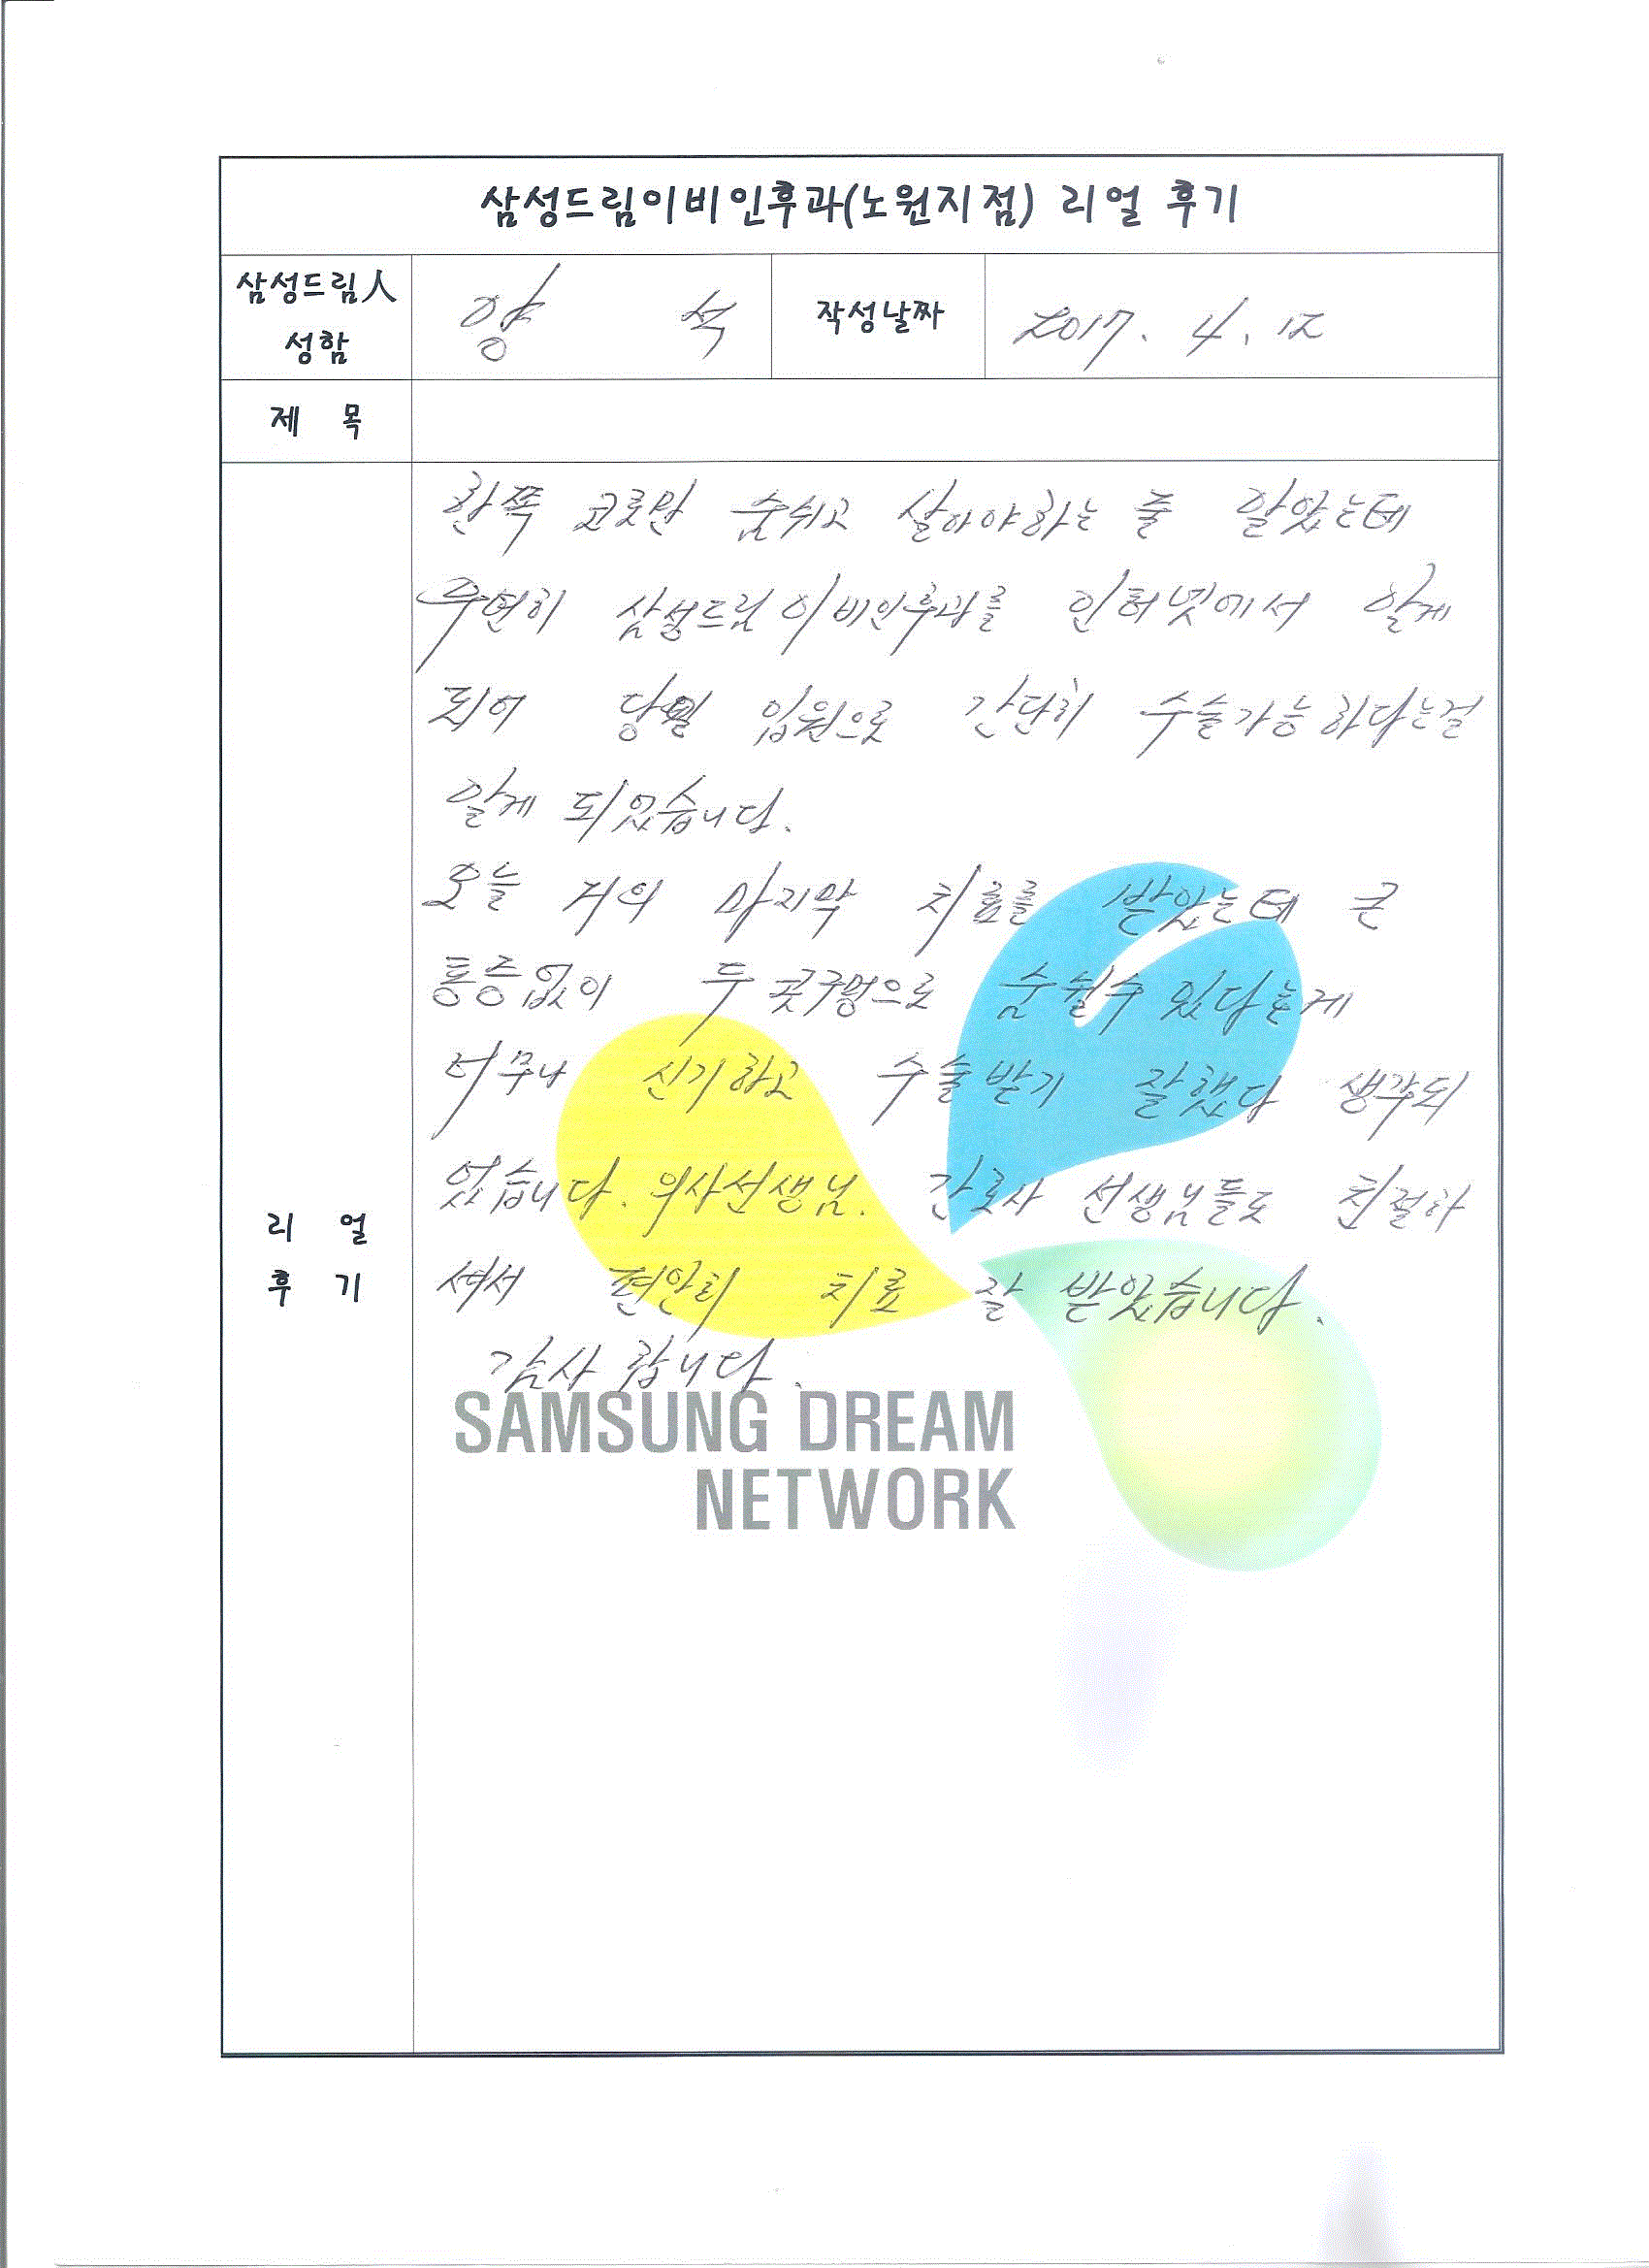 삼성드림이비인후과(노원지점) 리얼 후기
삼성드림人
성함
양 석
작성날짜
2017. 4. 12
제 목
한쪽 코로만 숨쉬고 살아야하는 줄 알았는데
우연히 삼성드림이비인후과를 인터넷에서 알게
되어 당일 입원으로 간단히 수술가능하다는걸
알게 되었습니다.
오늘 거의 마지막 치료를 받았는데 큰
통증없이 두 콧구멍으로 숨쉴수 있다는게
너무나 신기하고 수술받기 잘했다 생각되
었습니다. 의사선생님. 간호사 선생님들도 친절하
셔서 편안히 치료 잘 받았습니다.
감사 합니다.
리 얼
후 기
SAMSUNG DREAM
NETWORK